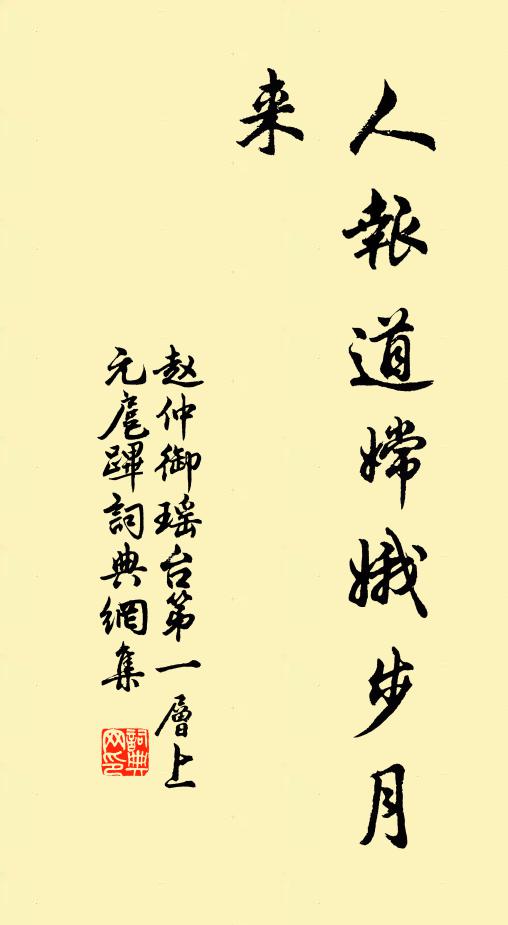 人報道嫦娥步月
来
赵仲御瑶台第一層上
元扈蹕詞典網集
詞典
网印